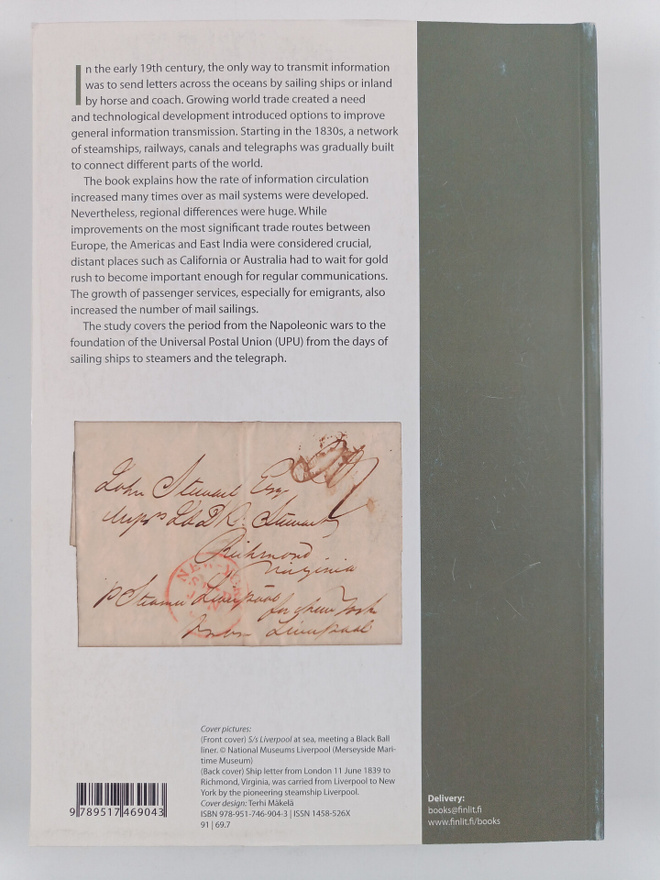 In the early 19th century, the only way to transmit information
was to send letters across the oceans by sailing ships or inland
by horse and coach. Growing world trade created a need
and technological development introduced options to improve
general information transmission. Starting in the 1830s, a network
of steamships, railways, canals and telegraphs was gradually built
to connect different parts of the world.
The book explains how the rate of information circulation
increased many times over as mail systems were developed.
Nevertheless, regional differences were huge. While
improvements on the most significant trade routes between
Europe, the Americas and East India were considered crucial,
distant places such as California or Australia had to wait for gold
rush to become important enough for regular communications.
The growth of passenger services, especially for emigrants, also
increased the number of mail sailings.
The study covers the period from the Napoleonic wars to the
foundation of the Universal Postal Union (UPU) from the days of
sailing ships to steamers and the telegraph.
John Stewart Esq
Stewart
Richmond
Virginia
p Steamer Liverpool
for New York
Liverpool
Cover pictures:
(Front cover) S/s Liverpool at sea, meeting a Black Ball
liner. © National Museums Liverpool (Merseyside Mari-
time Museum)
(Back cover) Ship letter from London 11 June 1839 to
Richmond, Virginia, was carried from Liverpool to New
York by the pioneering steamship Liverpool.
Cover design: Terhi Mäkelä
ISBN 978-951-746-904-3 | ISSN 1458-526X
91 | 69.7
9 789517 469043
Delivery:
books@finlit.fi
www.finlit.fi/books